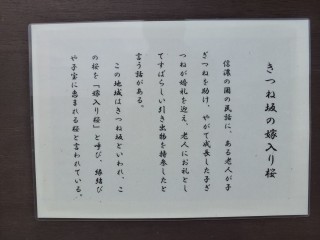 きつね坂の嫁入り桜
信濃の国の民話に、ある老人が子
ぎつねを助け、やがて成長した子ぎ
つねが婚礼を迎え、老人にお礼とし
てすばらしい引き出物を持参したと
言う話がある。
この地域はきつね坂といわれ、こ
の桜を『嫁入り桜』と呼び、縁結び
や子宝に恵まれる桜と言われている。